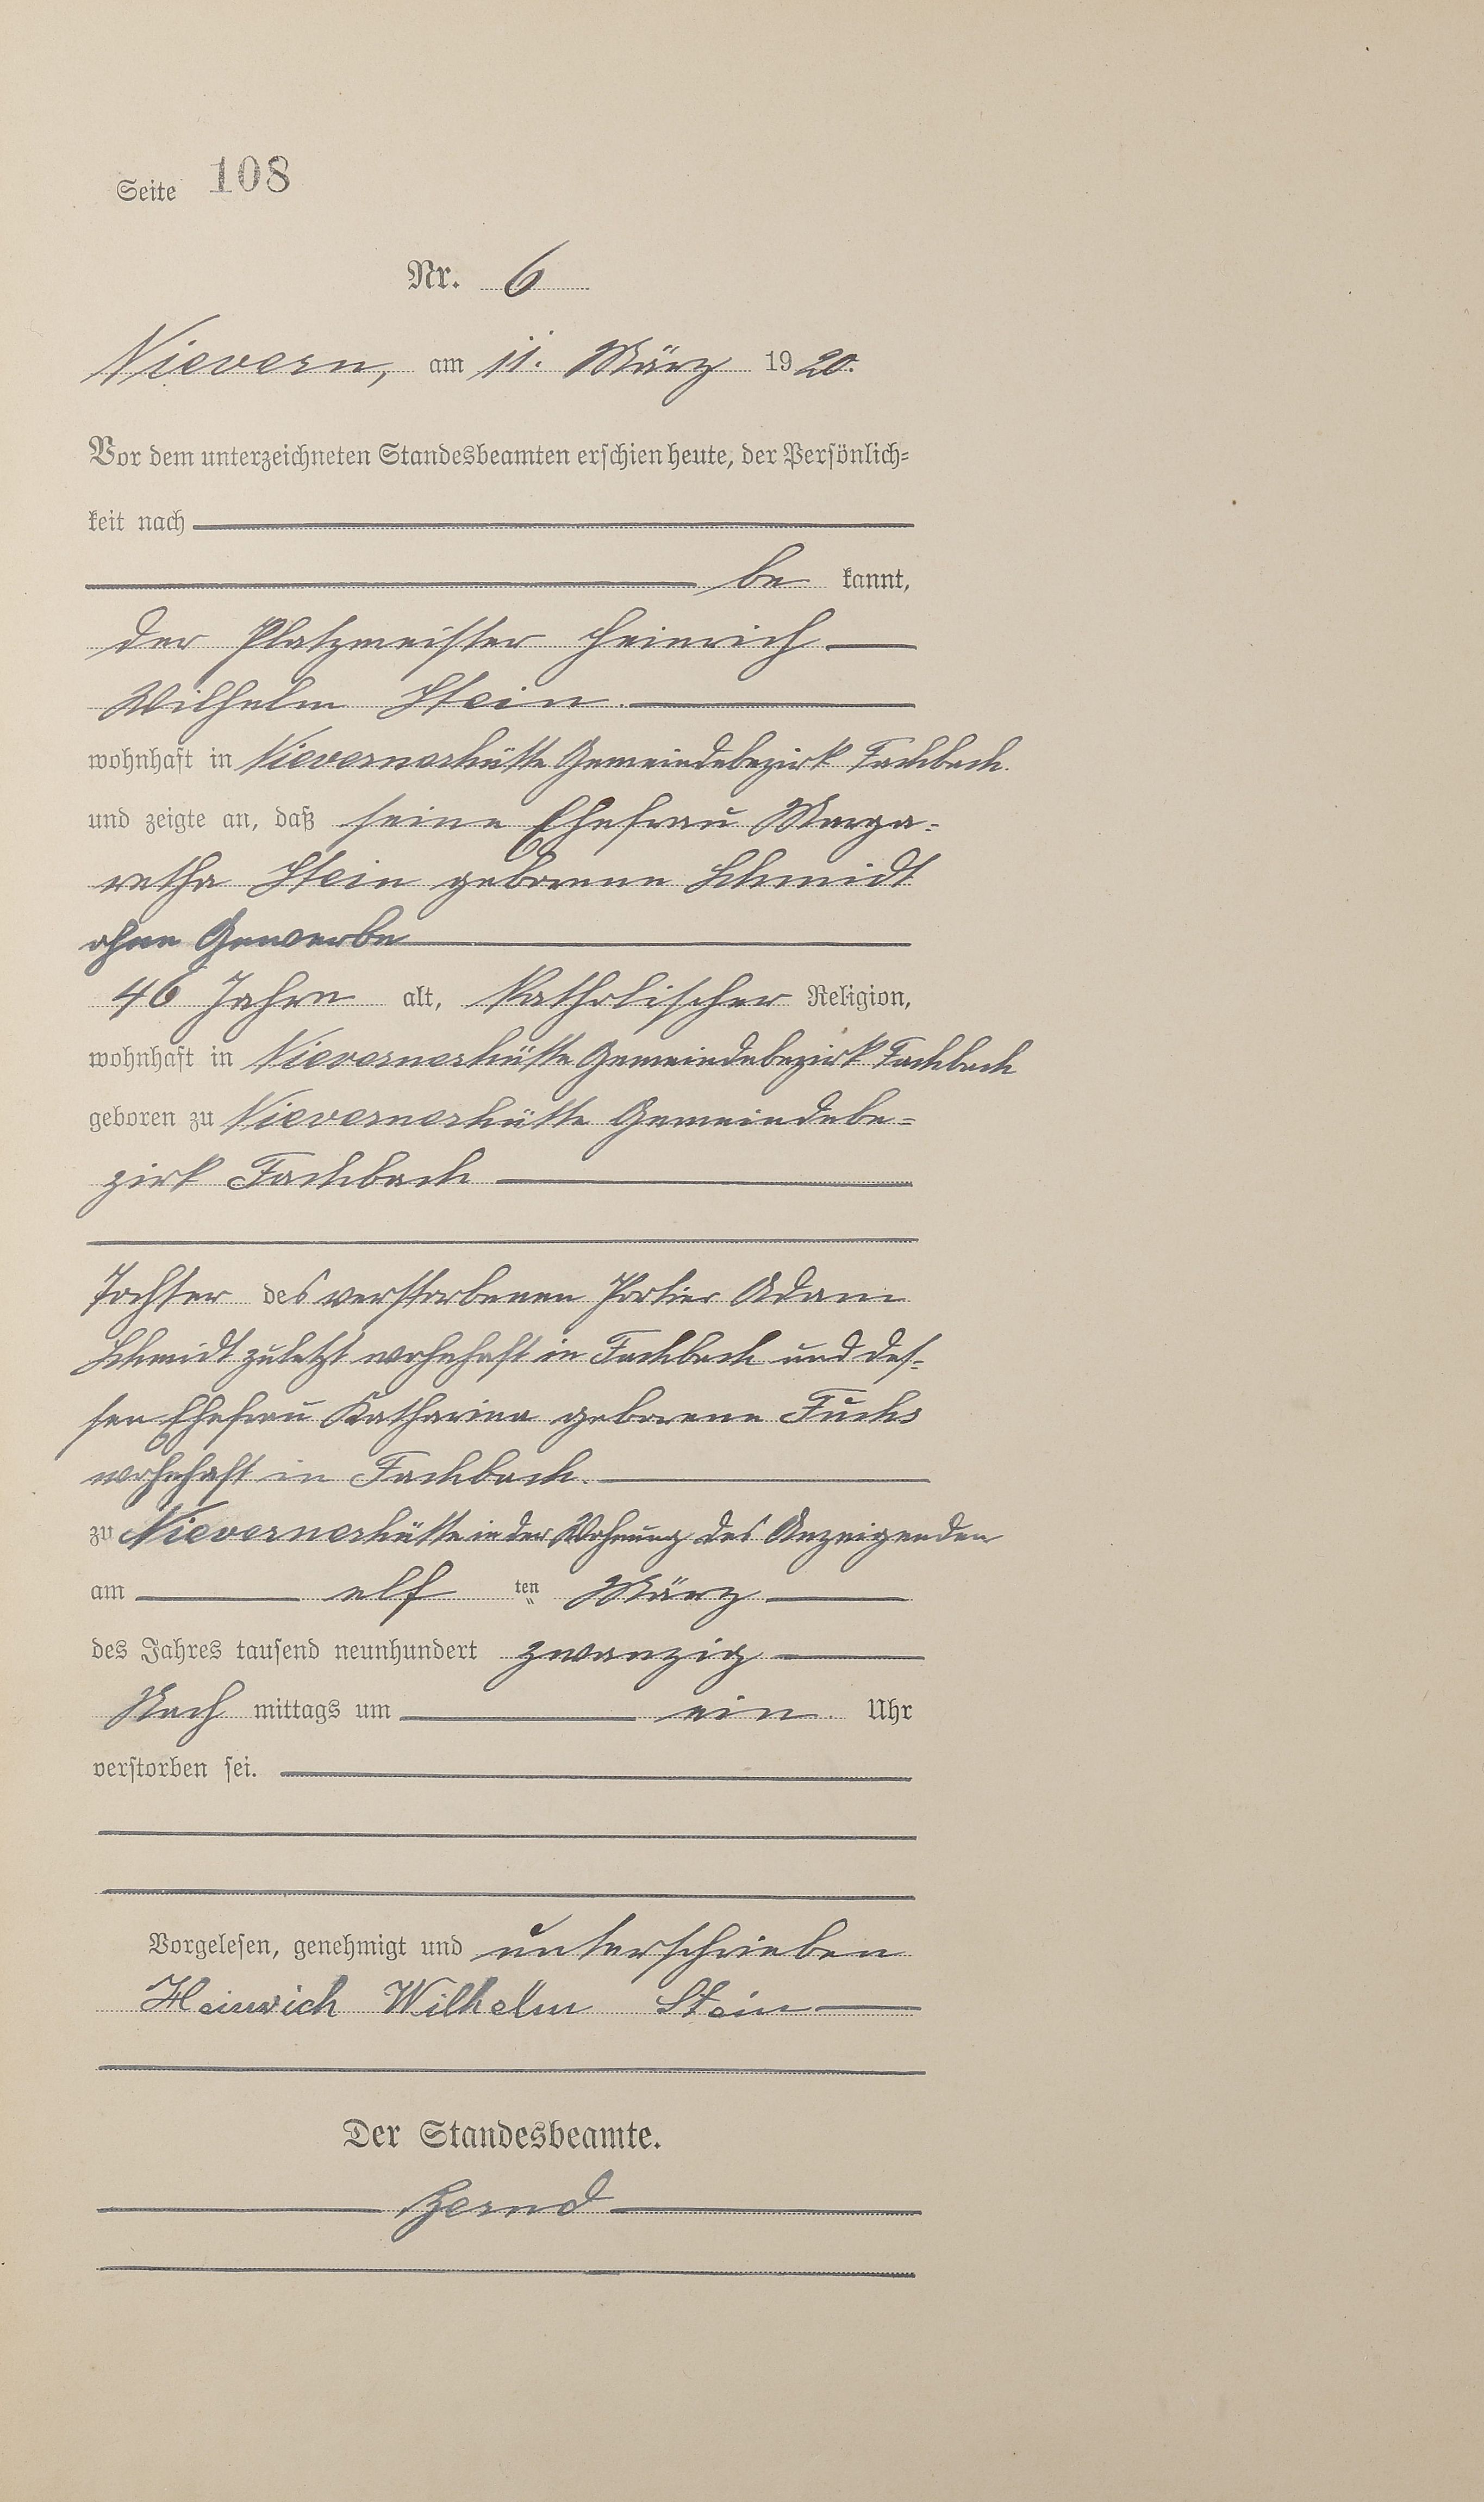 Seite 108
Nr. 6
Nievern, am 11. März 1920.
Vor dem unterzeichneten Standesbeamten erschien heute, der Persönlich-
keit nach
be kannt,
der Platzmeister Heinrich
Wilhelm Stein.
wohnhaft in Nievernerhütte Gemeindebezirk Fachbach.
und zeigte an, daß seine Ehefrau Marga-
retha Stein geborene Schmidt
ohne Gewerbe
46 Jahre alt, katholischer Religion,
wohnhaft in Nievernerhütte Gemeindebezirk Fachbach
geboren zu Nievernerhütte Gemeindebe-
zirk Fachbach
Tochter des verstorbenen Portier Adam
Schmidt zuletzt wohnhaft in Fachbach und des-
sen Ehefrau Katharina geborene Fuchs
wohnhaft in Fachbach.
zu Nievernerhütte in der Wohnung des Anzeigenden
am elf ten März
des Jahres tausend neunhundert zwanzig
Nach mittags um ein Uhr
verstorben sei.
Vorgelesen, genehmigt und unterschrieben
Heinrich Wilhelm Stein
Der Standesbeamte.